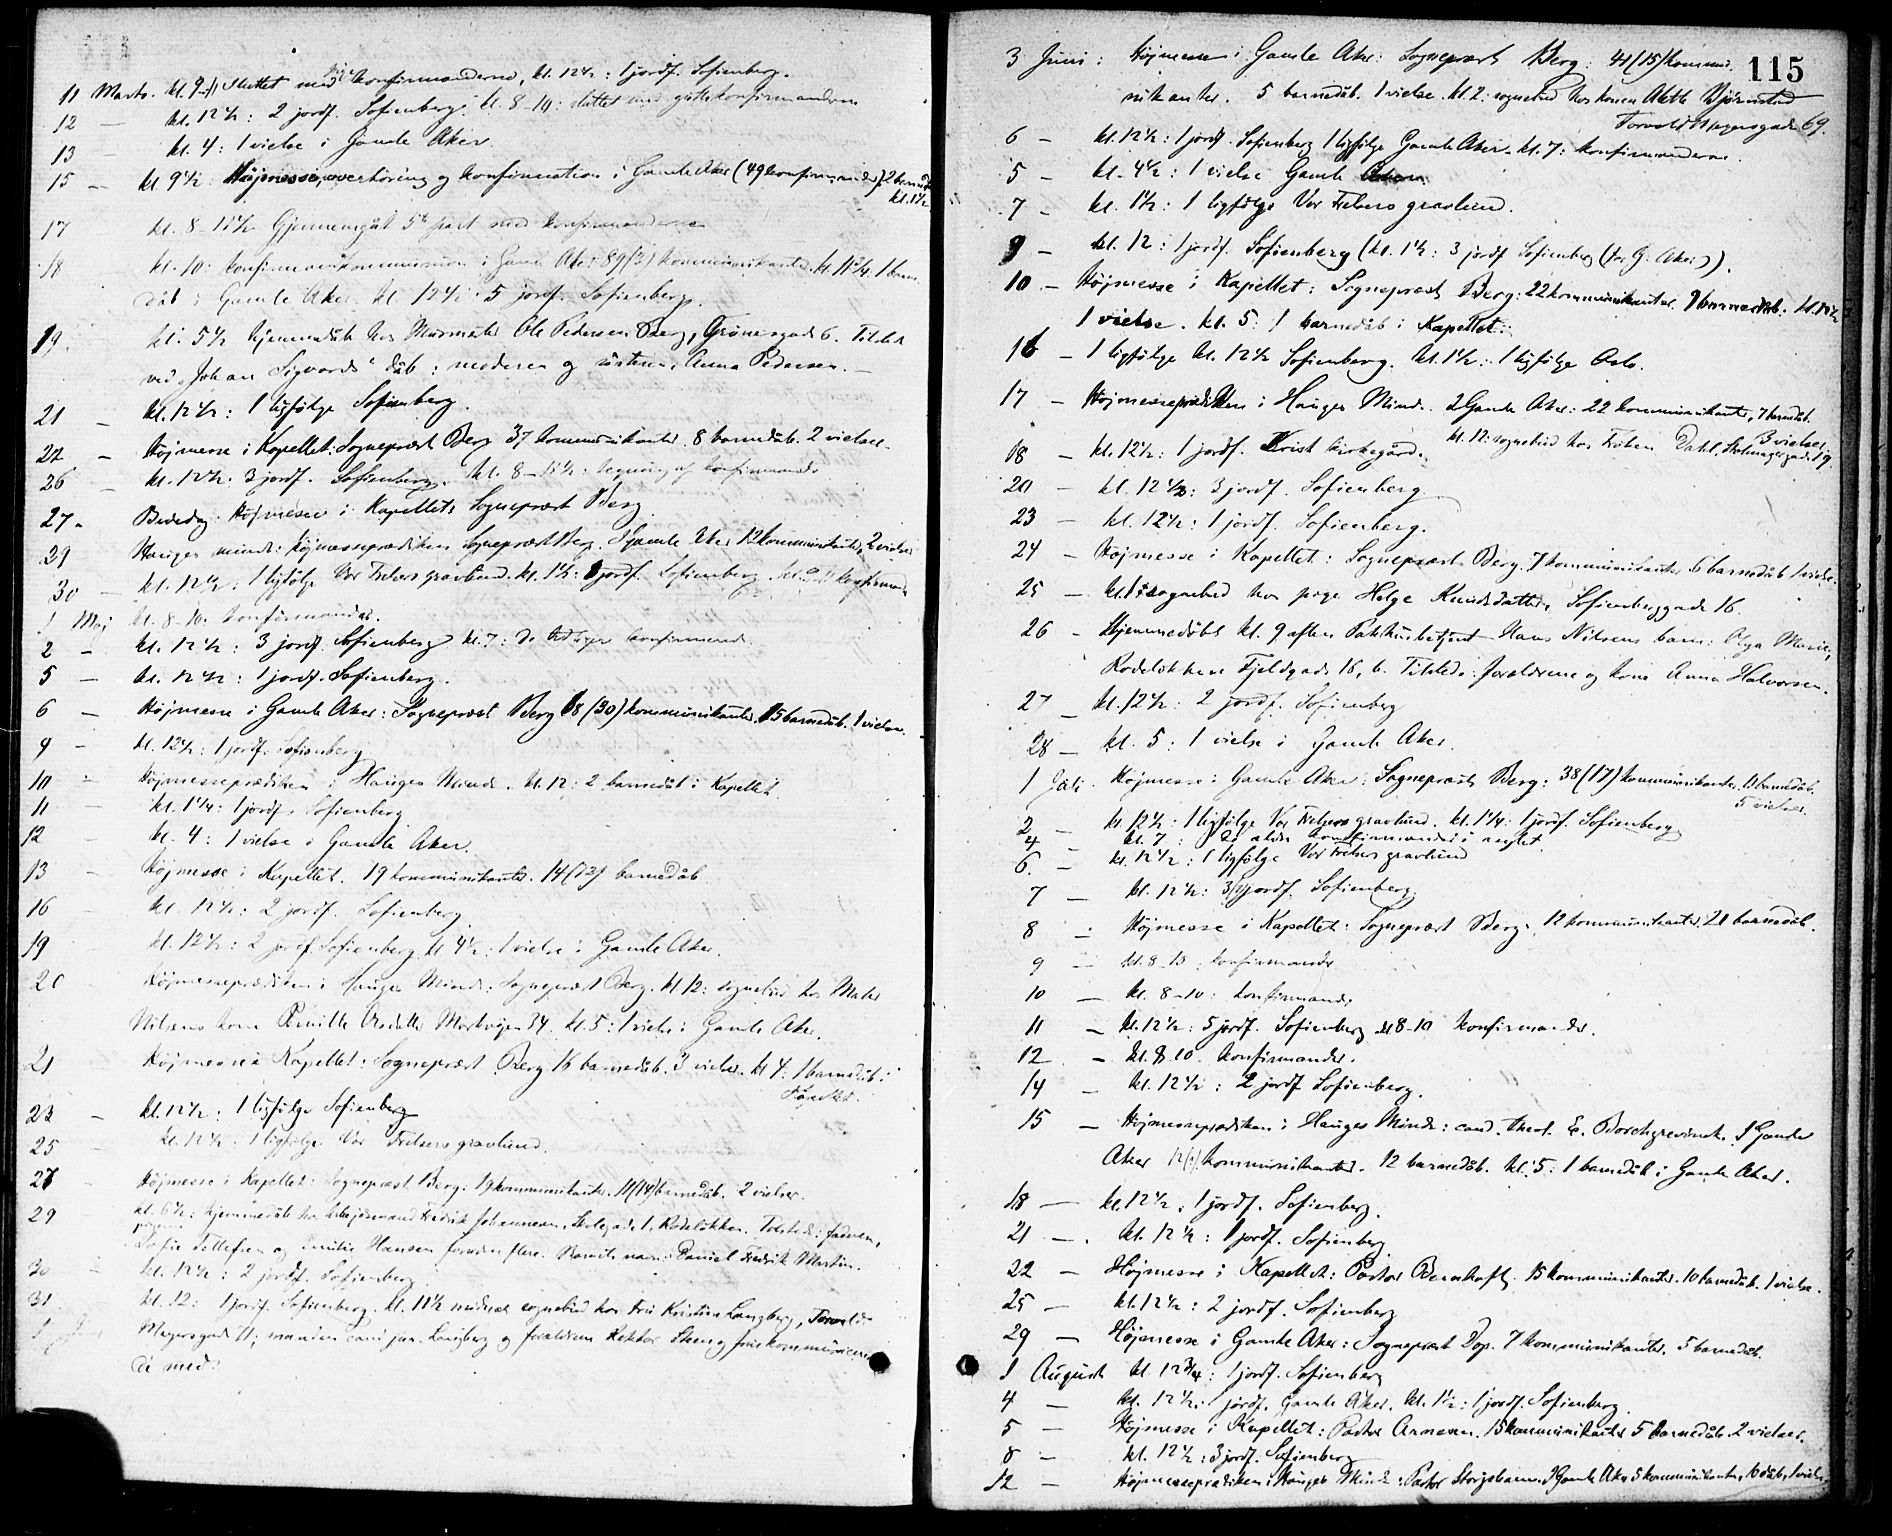 11 Marts. kl. 9-11 Sluttet med konfirmanderne, kl. 12½: 1 jordf. Sofienberg.
12 — kl. 12½: 2 jordf. Sofienberg. kl. 8-10: sluttet med guttekonfirmanderne
13 — kl. 4: 1 vielse i Gamle Aker.
15 — kl 9½ Højmesse, overhøring og konfirmation i Gamle Aker (49 konfirmander) 2 barnedåb
kl. 1½
17 kl. 8-11½ Gjennemgåt 5te part med konfirmanderne
18 kl. 10: konfirmandkommunion i Gamle Aker: 89(2) kommunikanter. kl. 11¾. 1 barne
dåb i Gamle Aker. kl. 12½. 5 jordf. Sofienberg.
19. kl. 5½ hjemmedåb hos Murmester Ole Pedersen Berg, Grønergade 6. Tilsted
ved "Johan Sigvards" dåb: moderen og søsteren Anna Pedersen. —
21 — kl. 12½: 1 ligfølge Sofienberg.
22 — Højmesse i Kapellet: Sogneprest Berg 37 kommunikanter. 8 barnedåb. 2 vielser.
26 — kl. 12½. 3 jordf. Sofienberg. kl. 8-11½: tegning af konfirmander
27. Bededag. Højmesse i Kapellet: Sogneprest Berg
29 Hauges minde: Højmesseprædiken Sogneprest Berg. I Gamle Aker 12 kommunikanter, 2 vielser
30 — kl. 12½. 1 ligfølge Vor Frelsers gravlund. kl. 1½: 1 jordf. Sofienberg. kl. 9-11 konfirmand
1 Maj kl. 8-10. konfirmander.
2 — kl. 12½: 3 jordf. Sofienberg kl. 7: De konfirmerede
5 — kl. 12½: 1 jordf. Sofienberg.
6 — Højmesse i Gamle Aker: Sogneprest Berg 68 (30) kommunikanter. 15 barnedåb. 1 vielse.
9 — kl. 12½: 1 jordf. Sofienberg
10 — Højmesseprædiken i Hauges Minde. kl. 12: 2 barnedåb i Kapellet.
11 — kl. 1¼: 1 jordf. Sofienberg
12 — kl. 4: 1 vielse i Gamle Aker.
13 — Højmesse i Kapellet. 19 kommunikanter. 14(12) barnedåb.
16 — kl. 12½: 2 jordf. Sofienberg
19 kl. 12½: 2 jordf. Sofienberg kl 4½: 1 vielse i Gamle Aker.
20 — Højmesseprædiken i Hauges Minde: Sogneprest Berg. kl. 12: sognebud hos Maler
Nilsens kone Pernille Markvejen 34. kl. 5: 1 vielse i Gamle Aker.
21 Højmesse i Kapellet: Sogneprest Berg 16 barnedåb. 3 vielser. kl 4: 1 barnedåb i
Kapellet.
23 — kl. 12½: 1 ligfølge Sofienberg
25 — kl. 12½. 1 ligfølge Vor Frelsers gravlund.
27 Højmesse i Kapellet: Sogneprest Berg. 19 kommunikanter. 11(14) barnedåb. 2 vielser.
29 kl. 6½: hjemmedåb hos Arbejdsmand Fredrik Johannesen, Skolegade 1, Rodeløkken. Tilstede: faderen,
pigerne Sofie Tollefsen og Emilie Hansen foruden flere. Barnets navn: Daniel Fredrik Martin.
30 — kl. 12½: 2 jordf. Sofienberg
31 kl. 12: 1 jordf. Sofienberg. kl. 11½ midnat sognebud hos Fru Kristine Langberg, Torvald
Meyersgade 11; manden Langberg og forældrene Rektor Steen og frue kommunicere
de med.

115
3 Juni: Højmesse i Gamle Aker: Sogneprest Berg: 44 (15) kommu-
nikanter. 5 barnedåb. 1 vielse. kl. 2: sognebud hos konen Bjørnstad
Torvald Meyersgade 69.
6 — kl. 12½: 1 jordf. Sofienberg 1 ligfølge Gamle Aker. kl. 7: konfirmanderne.
5 — kl. 4½: 1 vielse Gamle Aker.
7 — kl. 1½: 1 ligfølge Vor Frelsers gravlund.
9 — kl. 12: 1 jordf. Sofienberg (kl. 1½: 3 jordf Sofienberg (for G: Aker)).
10 — Højmesse i Kapellet: Sogneprest Berg: 22 kommunikanter. 9 barnedåb. kl. 12½
1 vielse. kl. 5: 1 barnedåb i Kapellet.
16 — 1 ligfølge kl. 12½ Sofienberg. kl. 1½: 1 ligfølge Oslo.
17 — Højmesseprædiken i Hauges Minde. I Gamle Aker: 22 kommunikanter, 7 barnedåb.
3 vielser.
18 — kl. 12½: 1 jordf. Krist kirkegård. kl. 12: sognebud hos Frøken Dahl,
20 — kl. 12½: 3 jordf. Sofienberg
23 — kl. 12½: 1 jordf. Sofienberg.
24 — Højmesse i Kapellet: Sogneprest Berg. 7 kommunikanter 6 barnedåb 1 vielse.
25 — kl. 1: sognebud hos pige Helge Knudsdatter, Sofienberggade 16.
26 — Hjemmedøbt kl. 9 aften Pakhusbetjent Hans Nilsens barn: Olga Marie,
Rodeløkken Fjeldgade 16, b. Tilstede: forældrene og kone Anna Halvorsen.
27 — kl. 12½: 2 jordf. Sofienberg
28 — kl. 5: 1 vielse i Gamle Aker.
1 Juli. Højmesse: Gamle Aker: Sogneprest Berg: 38 (17) kommunikanter. 11 barnedåb.
5 vielser.
2 — kl. 12½: 1 ligfølge Vor Frelsers gravlund. kl. 1¼: 1 jordf. Sofienberg
4 — kl. 7: De konfirmander
6. — kl. 12½: 1 ligfølge Vor Frelsers gravlund
7 — kl. 12½: 3 jordf. Sofienberg.
8 — Højmesse i Kapellet: Sogneprest Berg. 12 kommunikanter. 21 barnedåb.
9 — kl. 8-10: konfirmander
10 — kl. 8-10: konfirmander
11 — kl. 12½: 5 jordf. Sofienberg kl 8-10 konfirmander.
12 — kl. 8-10. konfirmander.
14 — kl. 12½: 2 jordf Sofienberg.
15 — Højmesseprædiken i Hauges Minde: cand. theol. E. Borchgrevinck. I Gamle
Aker kommunikanter. 12 barnedåb. kl. 5: 1 barnedåb i Gamle Aker.
18 — kl. 12½: 1 jordf. Sofienberg.
21 — kl. 12½: 1 jordf. Sofienberg.
22 — Højmesse i Kapellet: Pastor Bernhoft. 15 kommunikanter. 10 barnedåb. 1 vielse.
25 — kl. 12½: 2 jordf. Sofienberg
29 — Højmesse i Gamle Aker: Sogneprest Dop. 7 kommunikanter. 5 barnedåb.
1 August kl. 12¾: 1 jordf. Sofienberg
4 — kl. 12½: 1 jordf. Gamle Aker. kl. 1½: 1 jordf. Sofienberg.
5 — Højmesse i Kapellet: Pastor Arnesen. 15 kommunikanter 5 barnedåb. 2 vielser.
8 — kl. 12½: 3 jordf. Sofienberg
12 — Højmesseprædiken i Hauges Minde: Pastor Storjohann. I Gamle Aker 5 kommunikanter, 16 dåb, 1 vielse